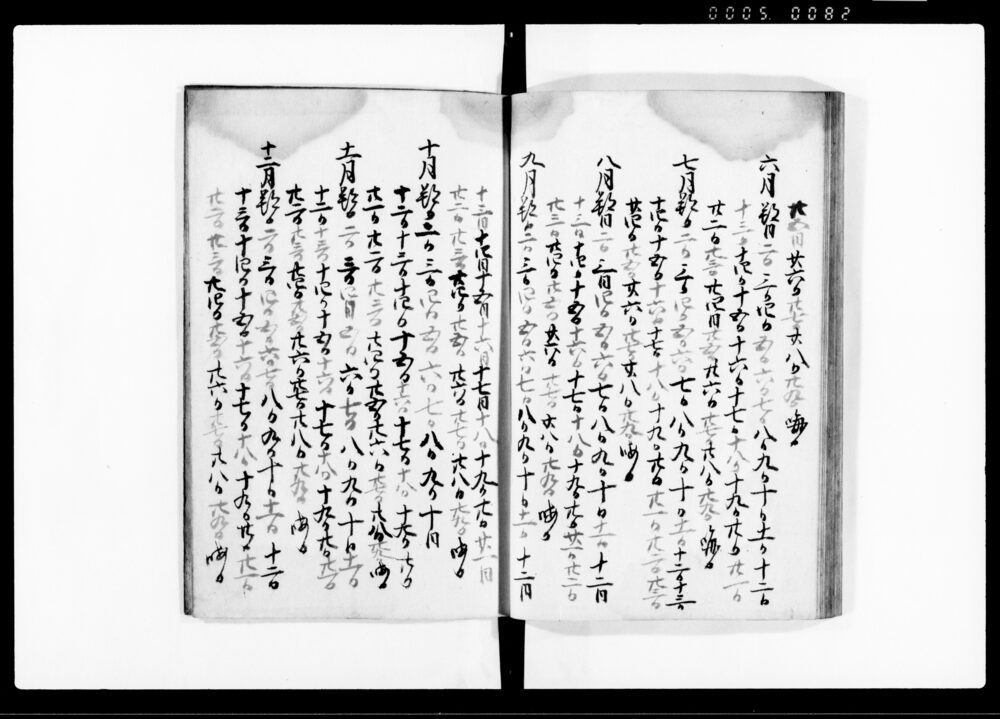 0005. 0082
廿五日廿六日廿七日廿八日廿九日晦日
六月朔日二日三日四日五日六日七日八日九日十日十一日十二日
十三日十四日十五日十六日十七日十八日十九日廿日廿一日
廿二日廿三日廿四日廿五日廿六日廿七日廿八日廿九日晦日
七月朔日二日三日四日五日六日七日八日九日十日十一日十二日十三日
十四日十五日十六日十七日十八日十九日廿日廿一日廿二日廿三日
廿四日廿五日廿六日廿七日廿八日廿九日晦日
八月朔日二日三日四日五日六日七日八日九日十日十一日十二日
十三日十四日十五日十六日十七日十八日十九日廿日廿一日廿二日
廿三日廿四日廿五日廿六日廿七日廿八日廿九日晦日
九月朔日二日三日四日五日六日七日八日九日十日十一日十二日
十三日十四日十五日十六日十七日十八日十九日廿日廿一日
廿二日廿三日廿四日廿五日廿六日廿七日廿八日廿九日晦日
十月朔日二日三日四日五日六日七日八日九日十日
十二日十三日十四日十五日十六日十七日十八日十九日廿日
廿一日廿二日廿三日廿四日廿五日廿六日廿七日廿八日廿九日晦日
十一月朔日二日三日四日五日六日七日八日九日十日十一日
十二日十三日十四日十五日十六日十七日十八日十九日廿日廿一日
廿二日廿三日廿四日廿五日廿六日廿七日廿八日廿九日晦日
十二月朔日二日三日四日五日六日七日八日九日十日十一日十二日
十三日十四日十五日十六日十七日十八日十九日廿日廿一日
廿二日廿三日廿四日廿五日廿六日廿七日廿八日廿九日晦日